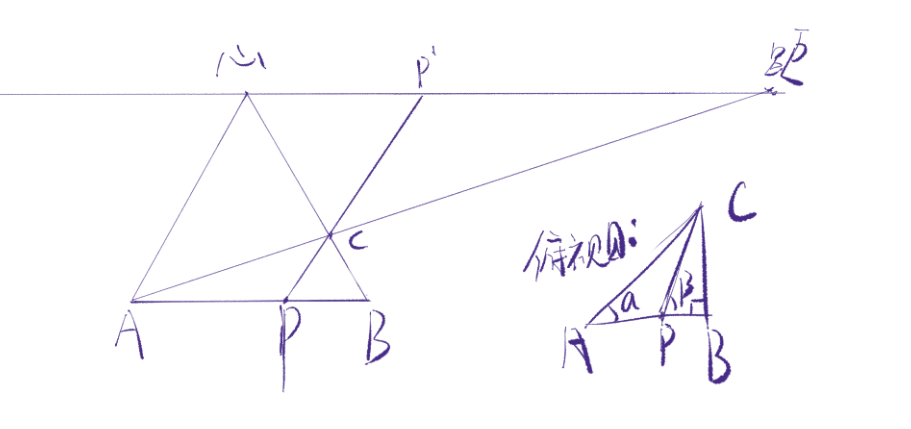 心 P' 距
C
A P B
俯视图:
C
a β
A P B